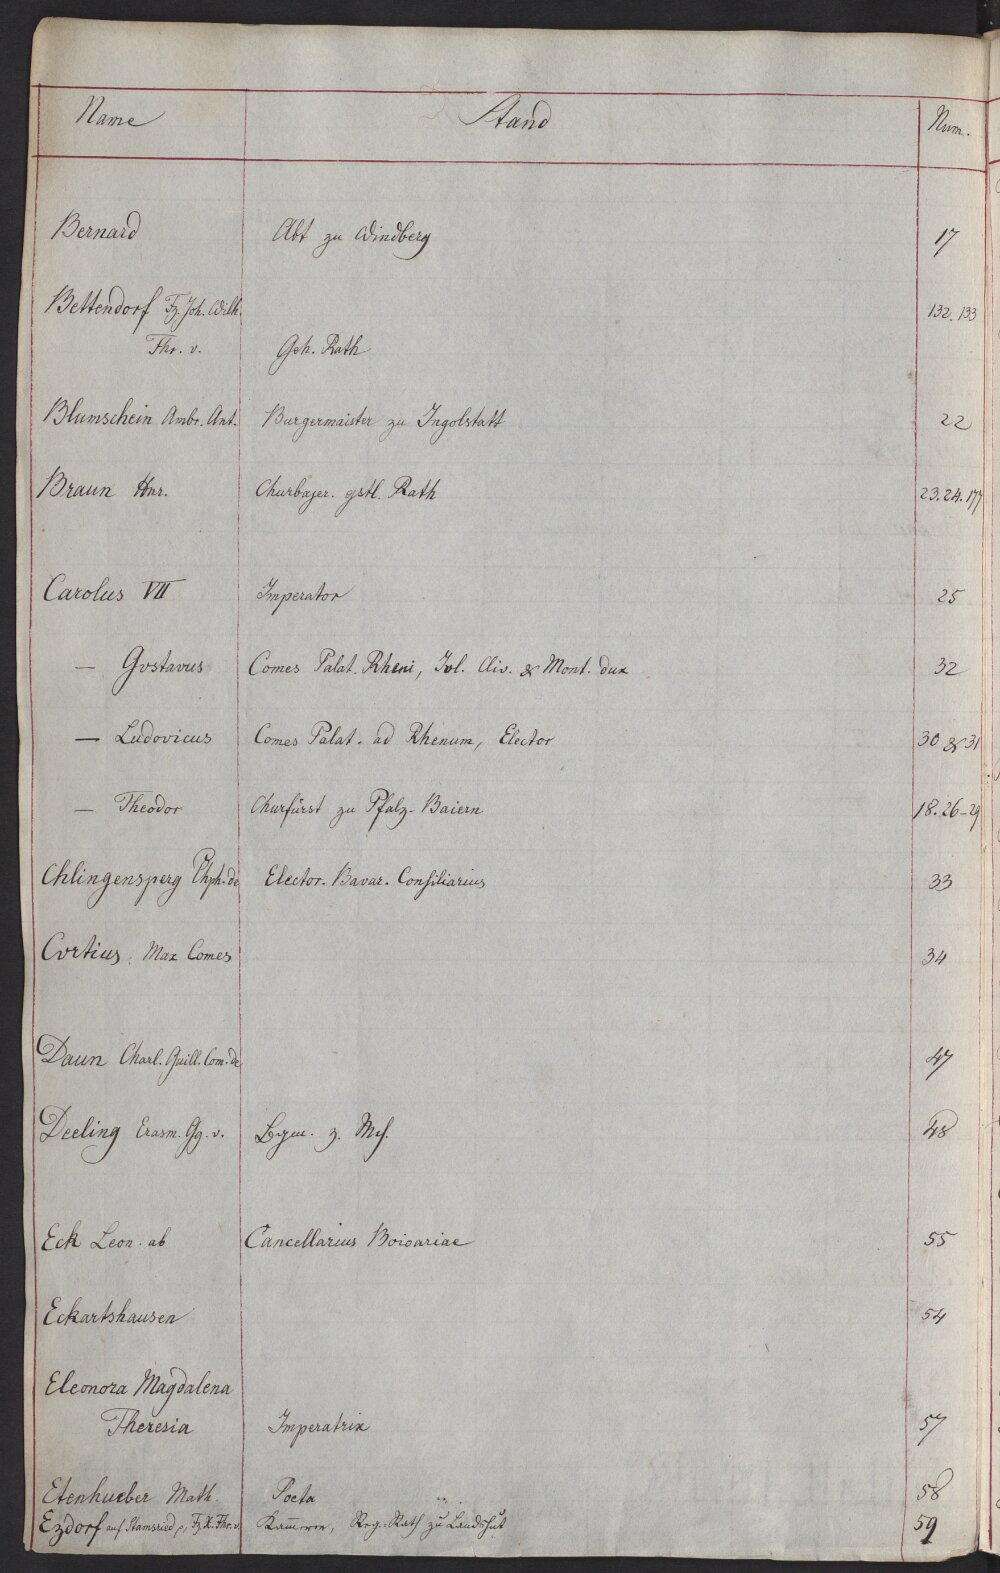 Name Stand Num.
Bernard Abt zu Windberg 17
Bettendorf Fz. Joh. Wilh. 132. 133
Fhr. v. Geh. Rath
Blumschein Ambr. Ant. Burgermaister zu Ingolstatt 22
Braun Hnr. Churbajer. gstl. Rath 23. 24. 177
Carolus VII Imperator 25
— Gvstavus Comes Palat. Rheni, Jvl. Cliv. & Mont. dux 32
— Ludovicus Comes Palat. ad Rhenum, Elector 30 & 31
— Theodor Churfürst zu Pfalz-Baiern 18. 26-29
Chlingensperg Phph. de Elector. Bavar. Consiliarius 33
Cvrtius, Max Comes 34
Daun Charl. Guill. Com. de 47
Deeling Erasm. Gg. v. 48
Eck Leon. ab Cancellarius Boioariae 55
Eckartshausen 54
Eleonora Magdalena
Theresia Imperatrix 57
Etenhueber Math. Poeta 58
Ezdorf auf Stamsried, Fz. X. Fhr. v. Reg. Rath zu Landshut 59